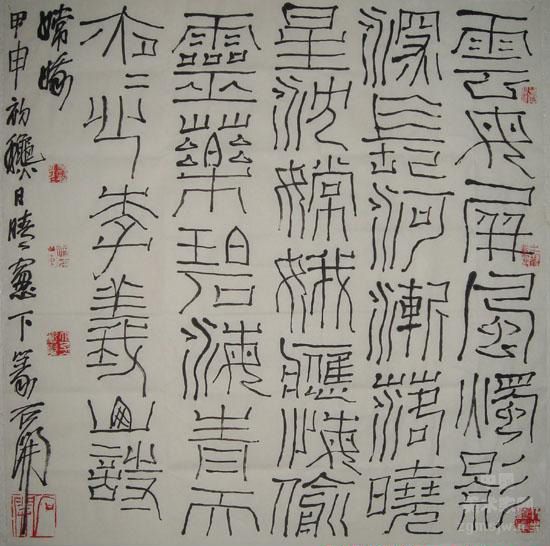 雲母屏風燭影
深長河漸落曉
星沈嫦娥應悔偷
靈藥碧海青天
夜〻心李義山詩
嫦娥
甲申初穐日晴窻下篆石開